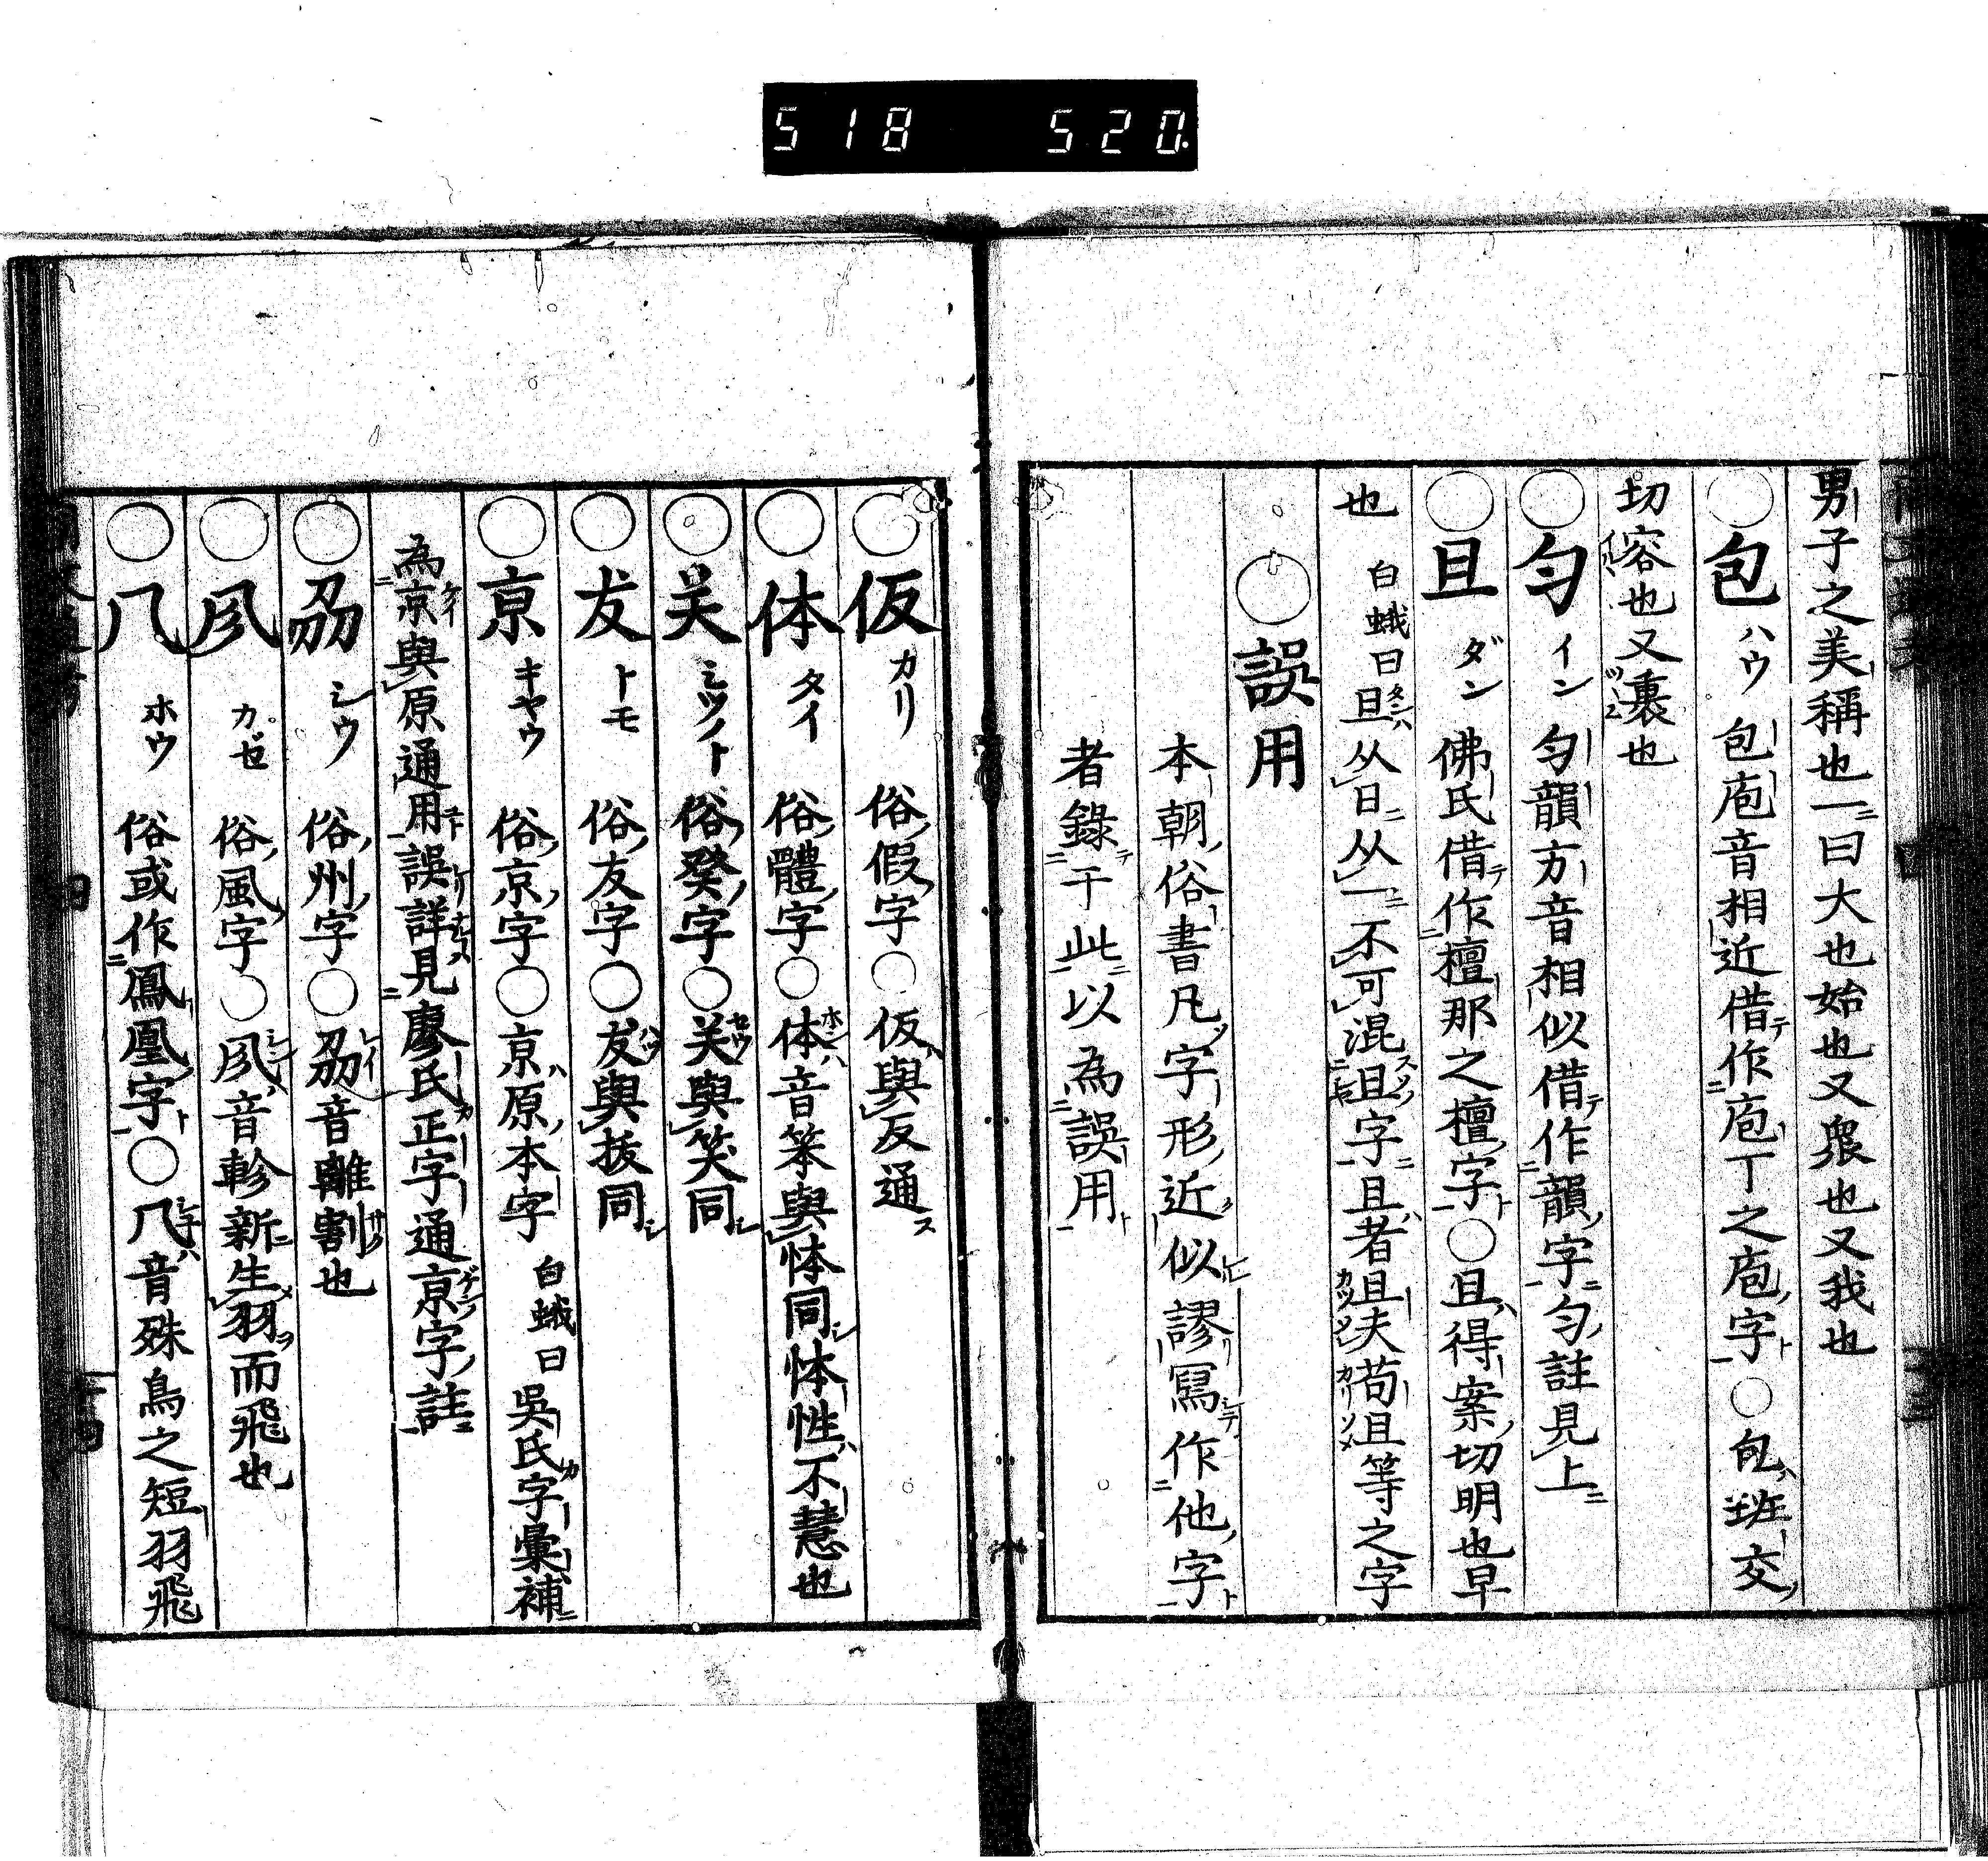 518 520
男子之美稱也一曰大也始也又衆也又我也
○包 ハウ 包庖音相近借作庖丁之庖字○包班交
切容也又裹也
○匀 イン 匀韻方音相似借作韻字匀註見上
○旦 ダン 佛氏借作檀那之檀字○旦得案切明也早
也 白蛾曰旦从日从一不可混且字且者且夫苟且等之字
○誤用
本朝俗書凡字形近似謬冩作他字
者錄于此以為誤用
○仮 カリ 俗假字○仮與反通
○体 タイ 俗體字○体音笨與㤓同㤓性不慧也
○关 ミツノト 俗癸字○关與笑同
○犮 トモ 俗友字○犮與拔同
○亰 キヤウ 俗京字○亰原本字 白蛾曰吳氏字彙補
為亰與原通用誤詳見廖氏正字通亰字註
○刕 シウ 俗州字○刕音離割也
○𠘳 カゼ 俗風字○𠘳音軫新生羽而飛也
○𠘧 ホウ 俗或作鳳凰字○𠘧音殊鳥之短羽飛